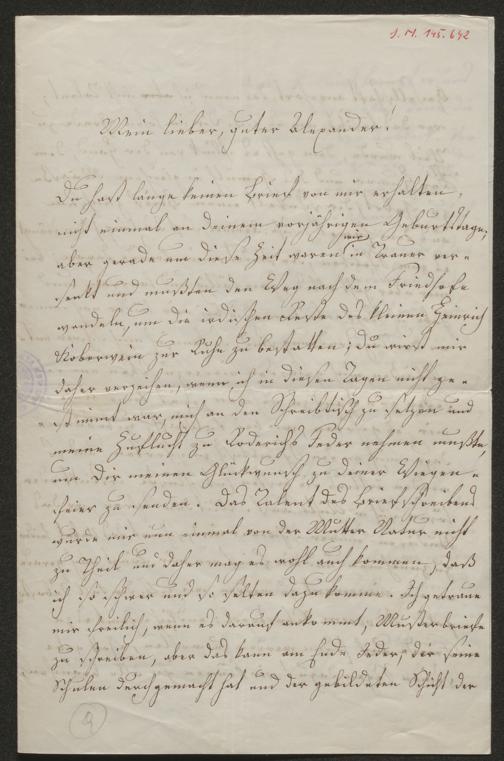 J. N. 145.642
Mein lieber, guter Alexander!
Du hast lange keinen Brief von mir erhalten,
nicht einmal an deinem vorjährigen Geburtstage;
aber gerade um diese Zeit waren wir in Trauer ver-
senkt und mußten den Weg nach dem Friedhofe
wandeln, um die irdischen Reste des kleinen Heinrich
Koberwein zur Ruhe zu bestatten; du wirst mir
daher verzeihen, wenn ich in diesen Tagen nicht ge-
stimmt war, mich an den Schreibtisch zu setzen und
meine Zuflucht zu Roderichs Feder nehmen mußte,
um Dir meinen Glückwunsch zu deiner Wiegen-
feier zu senden. Das Talent des Briefschreibens
wurde mir nun einmal von der Mutter Natur nicht
zu Theil und daher mag es wohl auch kommen, daß
ich so schwer und so selten dazu komme. Ich getraue
mir freilich, wenn es darauf ankommt, Musterbriefe
zu schreiben, aber das kann am Ende Jeder, der seine
Schulen durchgemacht hat und der gebildeten Schicht der